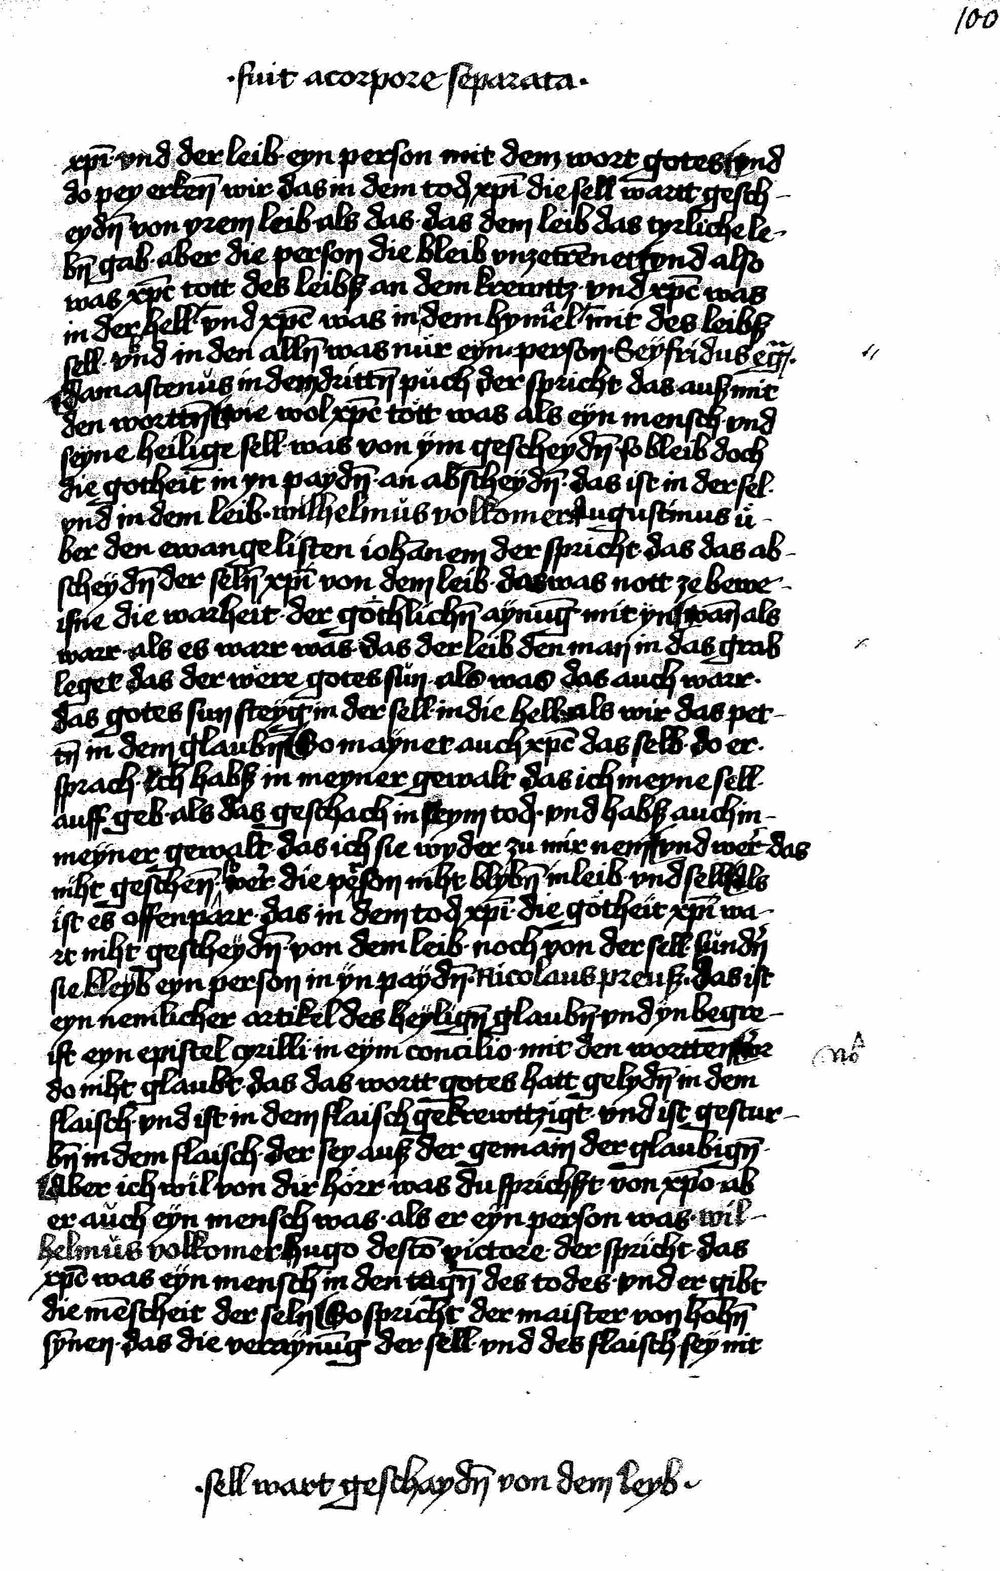 100
·fuit acorpore separata·
xp̄i· vnd der leib· eyn person mit dem wort gotes vnd
do pey erken̄ wir das in dem tod xp̄i die sell wartt gesch-
eydn̄ von yrem leib· als das· das dem leib das tyrliche le-
bn̄ gab· aber die person die bleib vnzetrēnet vnd also
was xp̄c tott des leibß an dem krewttz· vnd xp̄c was
in der hell· vnd xp̄c was in dem hymel· mit des leibß
sell· vnd in den alln̄ was nür eyn person· Seyfridus
Damastenüs in dem drittn̄ püch der spricht das auß mit
den worttn̄ wie wol xp̄c tött was als eyn mensch· vnd
seyne heilige sell· was von ÿm gescheydn̄· so bleib doch
die gotheit in yn paydn̄· an abscheydn̄· das ist in der sel·
vnd in dem leib· wilhelmüs volkomer Augustinus ü-
ber den ewangelisten iohānem der spricht· das das ab-
scheydn̄ der seln̄ xp̄i von dem leib· das was nott ze bewe-
isne die warheit· der göthlichn̄ aynūg mit yn wan̄ als
warr· als es warr was· das der leib den man in das grab
leget das der were gotes sün· als was das auch warr·
das gotes sun steyg in der sell· in die hell· als wir das pet-
tn̄ in dem glaubn̄ So mayner auch xp̄c das selb· do er·
sprach· Ich habß in meyner gewalt das ich meyne sell·
auff geb· als das geschach in seym tod· vnd habß auch in-
meyner gewalt das ich sie wyder zu mir nem vnd wer· das
niht geschen̄· wer die person niht blybn̄ in leib· vnd sell Als
ist es offenpārr· das in dem tod xp̄i· die gotheit xp̄i wa-
rt niht gescheydn̄· von dem leib· noch von der sell sündn̄
sie bleyb eyn person in ÿn paydn̄· Nicolaus preuß· das ist
eyn nemlicher artikel des heylign̄ glaubn̄· vnd yn begre-
ift eyn epistel cyrilli· in eym concilio· mit den wortten wer
do niht glaubt· das das wortt gotes hatt gelydn̄ in dem
flaisch· vnd ist in dem flaisch gekrewttzigt· vnd ist gestur-
bn̄ in dem flaisch· der sey auß der gemain der glaubign̄·
Aber ich wil von dir hörr was du sprichst von xp̄o· ab
er auch eÿn mensch was· als er eÿn person was· wil-
helmüs volkomer hugo destō victore· der spricht· das
xp̄c was eÿn mensch in den tagn̄ des todes· vnd er gibt
die mēscheit der seln̄ So spricht der maister von hohn̄
sÿnen· das die verāynūg der sell· vnd des flaisch· sey nit
·sell wart geschaydn̄ von dem leyb·